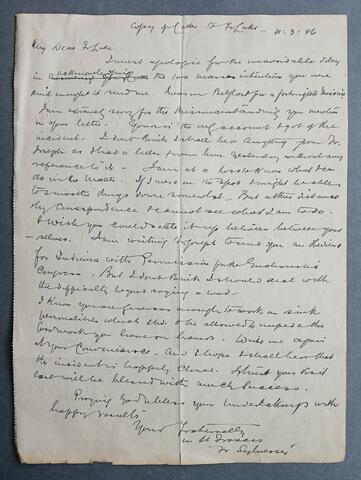 Copy of Letter to Fr Luke - 21.3.06
My Dear Fr Luke.
I must apologise for the unavoidable delay
in acknowledging the two masses intentions you were
kind enough to send me. I was in Belford for a fortnight's mission
I am extremely sorry for the misunderstanding you mention
in your letter. Yours is the only account I got of the
incident. I don't think I shall hear anything from Fr.
Joseph as I had a letter from him yesterday without any
reference to it. I am at a loss to know what I can
do in the matter. If I were on the spot I might be able
to smooth things down somewhat. But at this distance
by correspondence I cannot see what I am to do.
I wish you could settle it up between between your
-selves. I am writing Fr Joseph to send you an
for with permission for the Eucharistic
Congress. But I don't think I should deal with
the difficulty beyond saying a word -
I know you are generous enough to work on sink
personalities which should be allowed to impede the
Good work you have on hands. Write me again
at your convenience. And I hope I shall hear that
the incident is happily closed. I trust your
will be blessed with much success.
Praying God to bless your undertakings with
happy results
Yours fraternally
in St Francis
Fr Sylvester